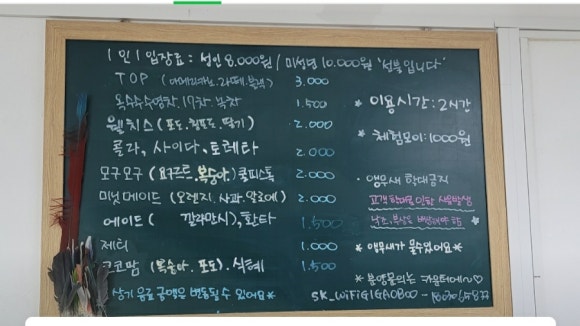 1인 입장료 : 성인 8.000원 / 미성년 10.000원 '선불입니다'
TOP (아메리카노. 라떼. 블랙) 3.000
옥수수수염차. 17차. 녹차 1.500
웰치스 (포도. 청포도. 딸기) 2.000
콜라, 사이다, 토레타 2.000
모구모구 (요구르트. 복숭아.) 쿨피스톡 2.000
미닛메이드 (오렌지. 사과. 알로에) 2.000
에이드 ( 깔라만시), 환타 1.500
제티 1.000
코코팜 (복숭아. 포도). 식혜 1.500
상기 음료 금액은 변동될 수 있어요*
* 이용시간 : 2시간
* 체험모이 : 1000원
· 앵무새 학대금지
고객 학대로 인한 사망발생
낙조, 부상도 변상해야 함
* 앵무새가 물수있어요 *
* 분양문의는 카운터에서♡
SK_WiFiGIGA0B00 -